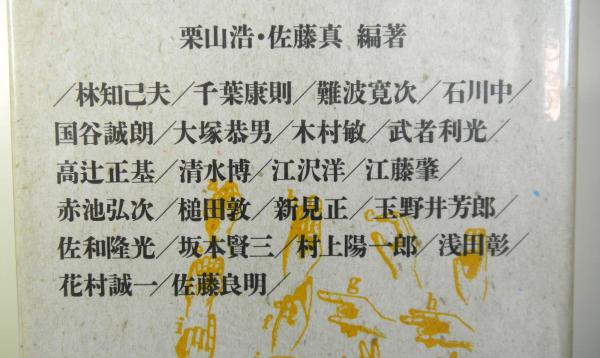 栗山浩・佐藤真 編著
／林知己夫／千葉康則／難波寛次／石川中／
国谷誠朗／大塚恭男／木村敏／武者利光／
高辻正基／清水博／江沢洋／江藤肇／
赤池弘次／槌田敦／新見正／玉野井芳郎／
佐和隆光／坂本賢三／村上陽一郎 浅田彰／
花村誠一／佐藤良明／
g
h